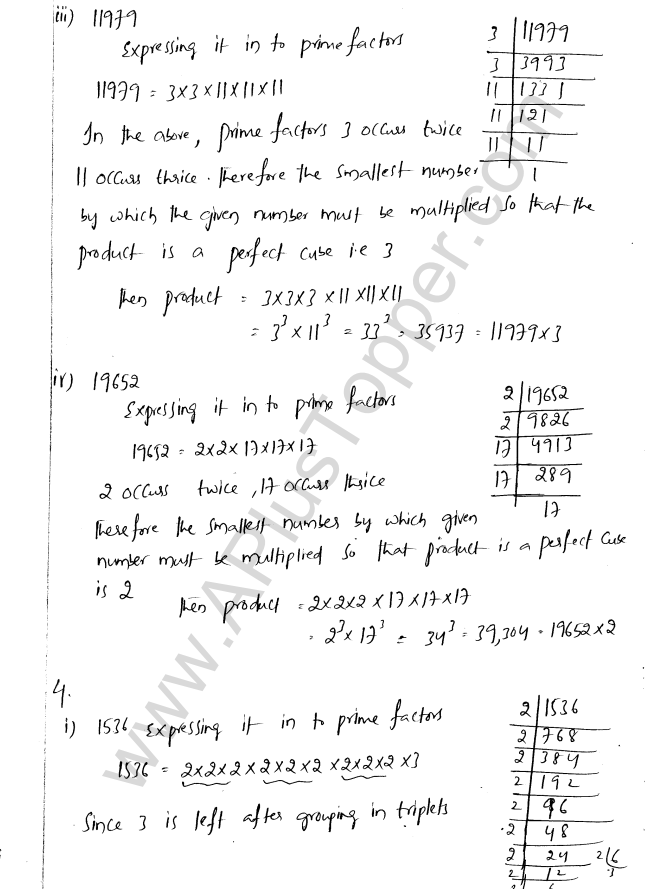 iii) 11979
Expressing it in to prime factors
11979 = 3×3×11×11×11
In the above, prime factors 3 occurs twice
11 occurs thrice. therefore the smallest number
by which the given number must be multiplied so that the
product is a perfect cube i.e 3
then product = 3×3×3×11×11×11
= 3³ × 11³ = 33³ = 35937 = 11979×3
3 | 11979
3 | 3993
11 | 1331
11 | 121
11 | 11
1
iv) 19652
Expressing it in to prime factors
19652 = 2×2×17×17×17
2 occurs twice, 17 occurs thrice
therefore the smallest number by which given
number must be multiplied so that product is a perfect cube
is 2
then product = 2×2×2×17×17×17
= 2³×17³ = 34³ = 39,304 = 19652×2
2 | 19652
2 | 9826
17 | 4913
17 | 289
17
4.
i) 1536 Expressing it in to prime factors
1536 = 2×2×2×2×2×2×2×2×2×3
Since 3 is left after grouping in triplets
2 | 1536
2 | 768
2 | 384
2 | 192
2 | 96
2 | 48
2 | 24
2 | 12
2 | 6
3
www.APlusTopper.com